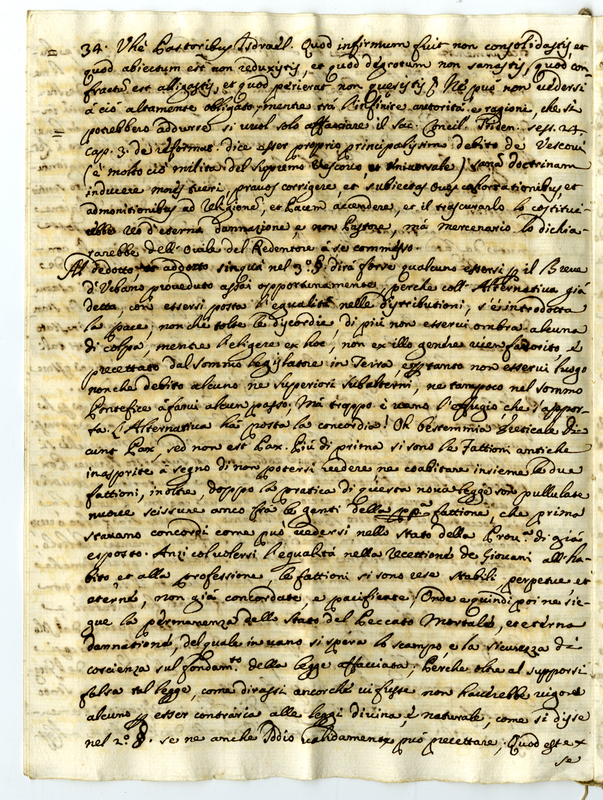 34. Vhè Pastoribus Isdraèl. Quod infirmum fuit non consolidastis, et
quod abiectum est non reduxistis, et quod aegrotum non sanastis, quod con-
fractu est alligastis, et quod perierat non quesistis. Nè può non vedersi
a ciò altamente obligato, mentre trà l'infinite autorità, e ragioni, che si
potrebbero addurre si vuol solo affacciare il sac. Concil. Triden. sess. 24.
cap. 3. de reformat. dice esser proprio principalissimo debito de Vescovi
(e molto ciò milita del supremo Vescovo Universale) sanā doctrinam
inducere mores tueri, pravos corrigere, et subiectos oves cohortationibus, et
admonitionibus ad Religionē, et Pacem accendere, et il trascurarlo lo costitui-
rebbe reo d'eterna dannazione, e non Pastore, mà mercenario lo dichia-
rarebbe dell'Ovile del Redentore à se commesso.
Al dedotto, et addotto sinquà nel 3.º §. dirà forse qualcuno essersi p il Breve
d'Urbano proveduto assai opportunamente, perche coll'Alternativa già
detta, con essersi posta l'equalità nelle distributioni, s'è introdotta
la pace, non che tolte le discordie di più non esservi ombra alcuna
di colpa, mentre l'eligere ex hoc, non ex illo genere vien favorito, e
precettato dal sommo legislatore in Terra, e ptanto non esservi luogo
nonche debito alcuno ne superiori subalterni, ne tampoco nel sommo
Pontefice à farvi alcun passo; Mà troppo è vano l'effugio che s'appor-
ta. L'Alternativa hà posta la concordia! Oh bestemmia Ereticale Di-
cunt Pax, sed non est Pax. Più di prima si sono le Fattioni antiche
inasprite à segno di non potersi vedere ne coabitare insieme le due
fattioni, inoltre, doppo la pratica di questa nova legge son pullulate
nuove scissure anco frà le genti della fattione, che prima
stavano concordi come può vedersi nello Stato della Prov.ª di già
esposto. Anzi col volersi l'equalità nella recettione de Giovani all'ha-
bito, et alla professione, le fattioni si sono rese stabili, perpetue, et
eterne, non già concordate, e pacificate. Onde e quindi poi ne sie-
gue la permanenza dello stato del Peccato Mortale, et eterna
dannatione, del quale in vano si spera lo scampo, e la sicurezza di
coscienza sul fondam.to della legge affacciata; Perche oltre al supporsi
falsa tal legge, come dirassi, ancorche vi fusse non haverebbe vigore
alcuno p esser contraria alle leggi divina, e naturale, come si disse
nel 2.º §. se ne anche Iddio validamente può precettare, Quod est ex
se